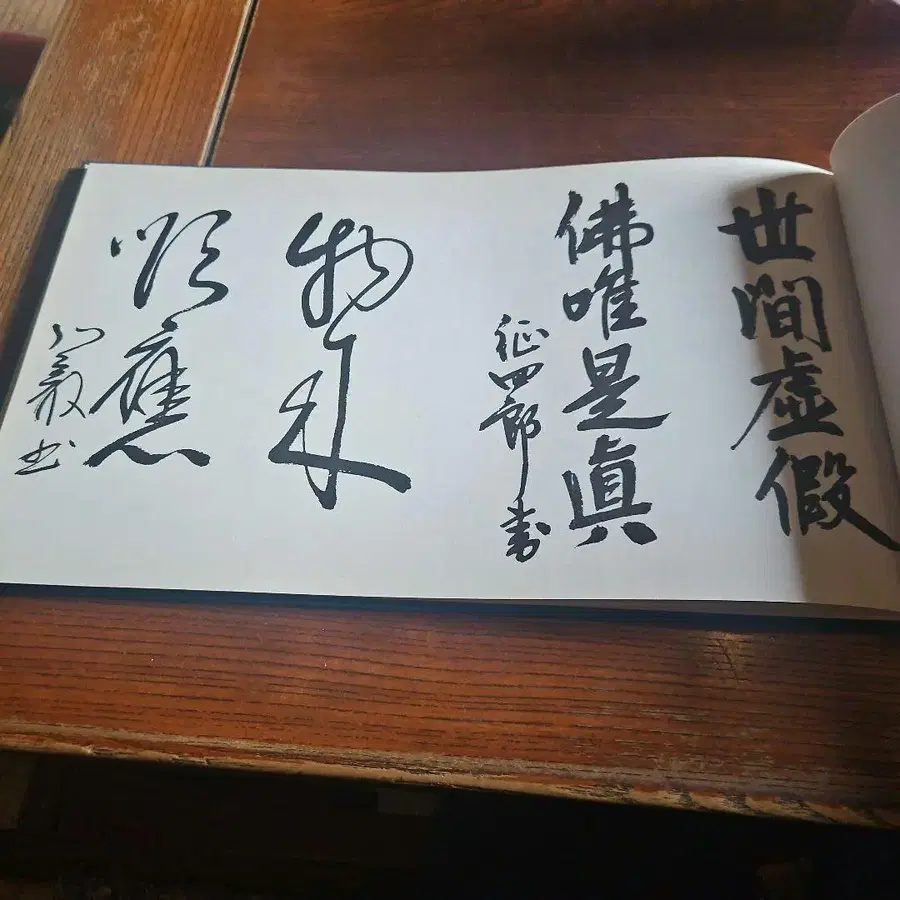 世間虚假
佛唯是真
征四郎書
物来
順應